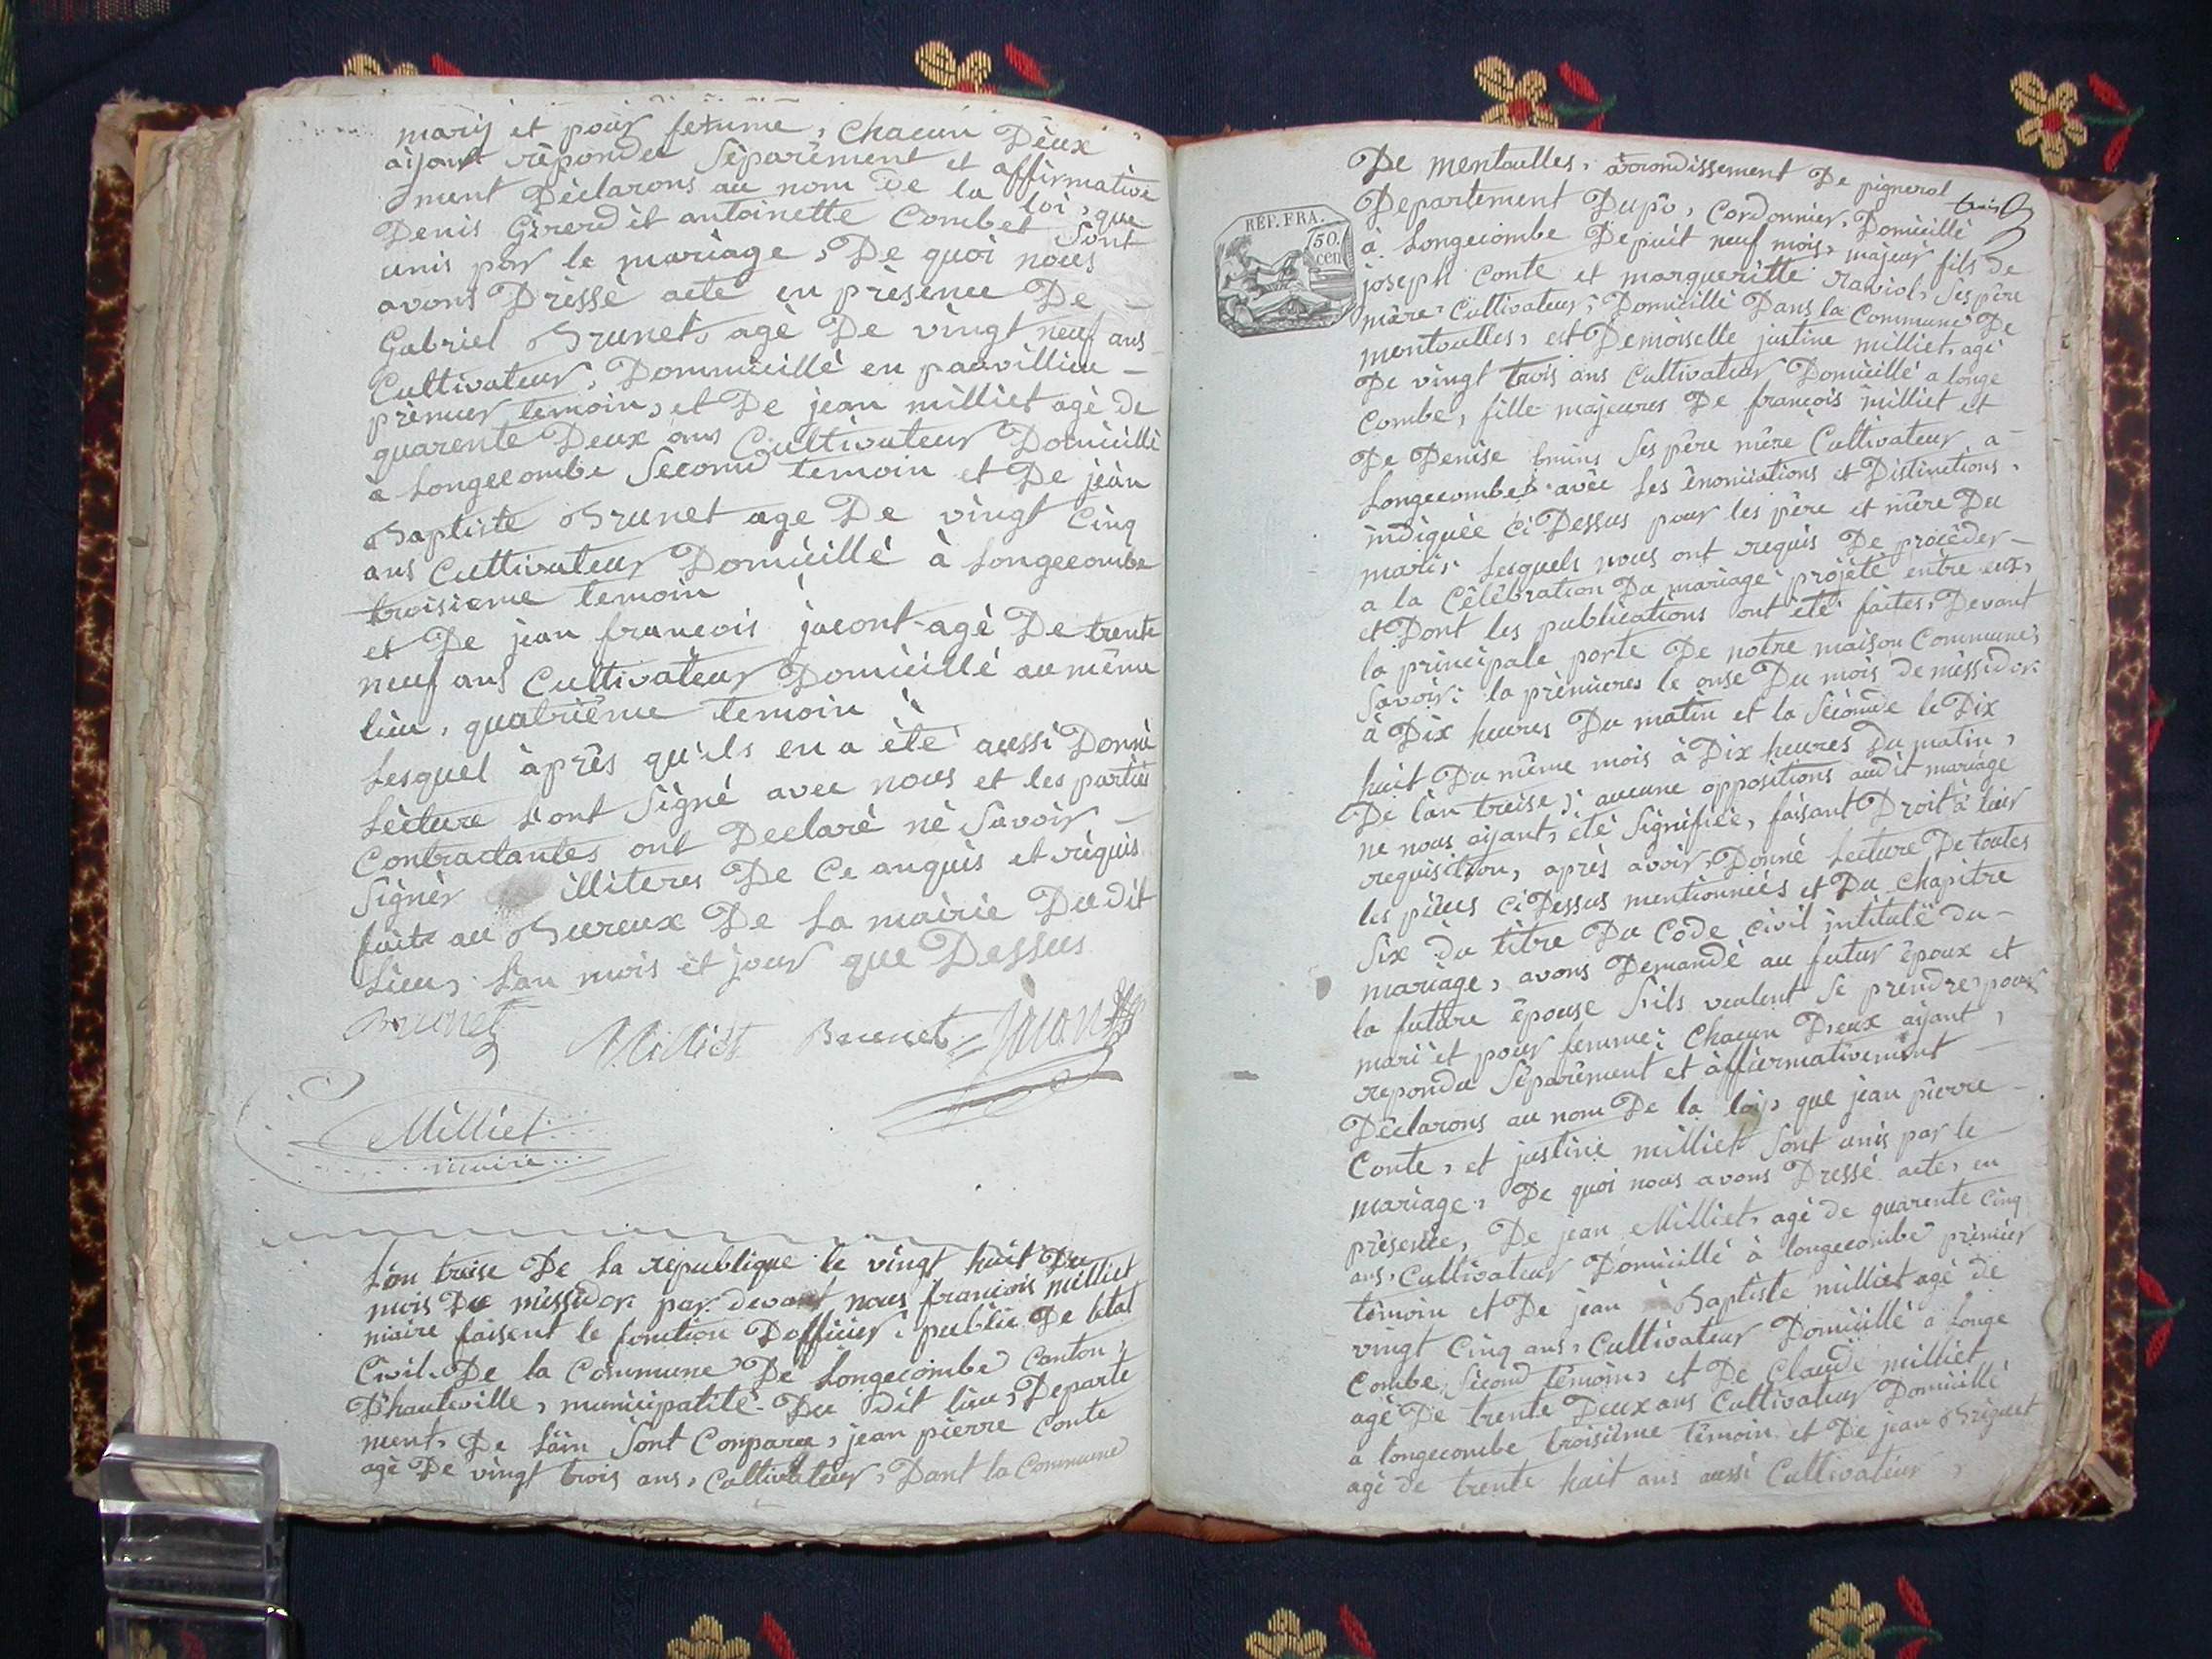 mary et pour femme, Chacun Deux
aijant repondu Séparément et affirmative
ment Déclarons au nom de la loi, que
Denis Girerd et antoinette Combet Sont
unis par le mariage, De quoi nous
avons Dressé acte en présence De
Gabriel Brunet, agé De vingt neuf ans
Cultivateur, Dommicillé en
premier temoin, et De jean milliet agé de
quarente Deux ans Cultivateur Domicillé
a Longecombe Second temoin et De jean
Baptiste Brunet age De vingt Cinq
ans Cultivateur Domicillé à Longecombe
troisieme temoin
et De jean francois jacont agé De trente
neuf ans Cultivateur Domicillé au même
lieu, quatriême temoin
Lesquel àprês qu'ils en a été aussi Donné
Lecture L'ont Signé avec nous et les parties
Contractantes ont Declaré né Savoir
Signer illiteres De Ce anquis et réquis
fait au Bureaux De La mairie Dudit
Lieu, L'an mois et jour que Dessus
Brunet Milliet Brunet jacont
Milliet
maire
L'an treise De La republique le vingt huit Du
mois Du messidor par devant nous francois milliet
maire faisent le fonction Dofficier public De letat
Civil De la Commune De Longecombe Canton
D'hauteville, municipatité Du dit lieu, Departe
ment De Lain Sont Comparu, jean pierre Conte
agé De vingt trois ans, Cultivateur, Dant la Commune
De mentoulles, arrondissement De pignerol
Departement Dupô, Cordonnier, Domicillé
REP. FRA.
50.
cen
à Longecombe Depuit neuf mois, majeur fils de
joseph Conte et margueritte raviol, Ses père
mère Cultivateur, Domicillé Dans la Commune De
mentoulles, est Demoiselle justine milliet, agé
De vingt trois ans Cultivateur Domicillé a longe
Combe, fille majeures De francois milliet et
De Denise Ses père mère Cultivateur a
Longecombe, avec Les énonciations et Distinctions,
indiquée Ci Dessus pour les père et mère Du
maris, Lesquels nous ont requis De procéder
a la Célébration Du mariage projété entre eux,
et Dont les publications ont été faites, Devant
la principale porte De notre maison Commune,
Savoir: la prémieres le onse Du mois de messidor
à Dix heures Du matin et la Séconde le Dix
huit Du même mois à Dix heures Du matin,
De l'an treise, aucune oppositions audit mariage
ne nous aijant, été Signifiée, faisant Droit à leur
requisition, après avoir, Donné Lecture De toutes
les pièces Ci Dessus mentionnées et Du Chapitre
Six du titre Du Code Civil intitulé du
mariage, avons Demandé au futur époux et
la future épouse S'ils veulent Se prendre, pour
mari et pour femme, Chacun Deux aijant,
repondu Séparêment et affiermativement
Déclarons au nom De la loi, que jean pierre
Conte, et justine milliet Sont unis par le
mariage, De quoi nous avons Dressé acte, en
présence, De jean Milliet, agé de quarente Cinq
ans, Cultivateur Domicillé à longecombe prémier
témoin et De jean Baptiste milliet agé de
vingt Cinq ans, Cultivateur Domicillé a Longe
Combe, Sécond témoin, et De Claude milliet
agé De trente Deux ans Cultivateur Domicillé
a longecombe troisième témoin et De jean
agé de trente huit ans aussi Cultivateur,